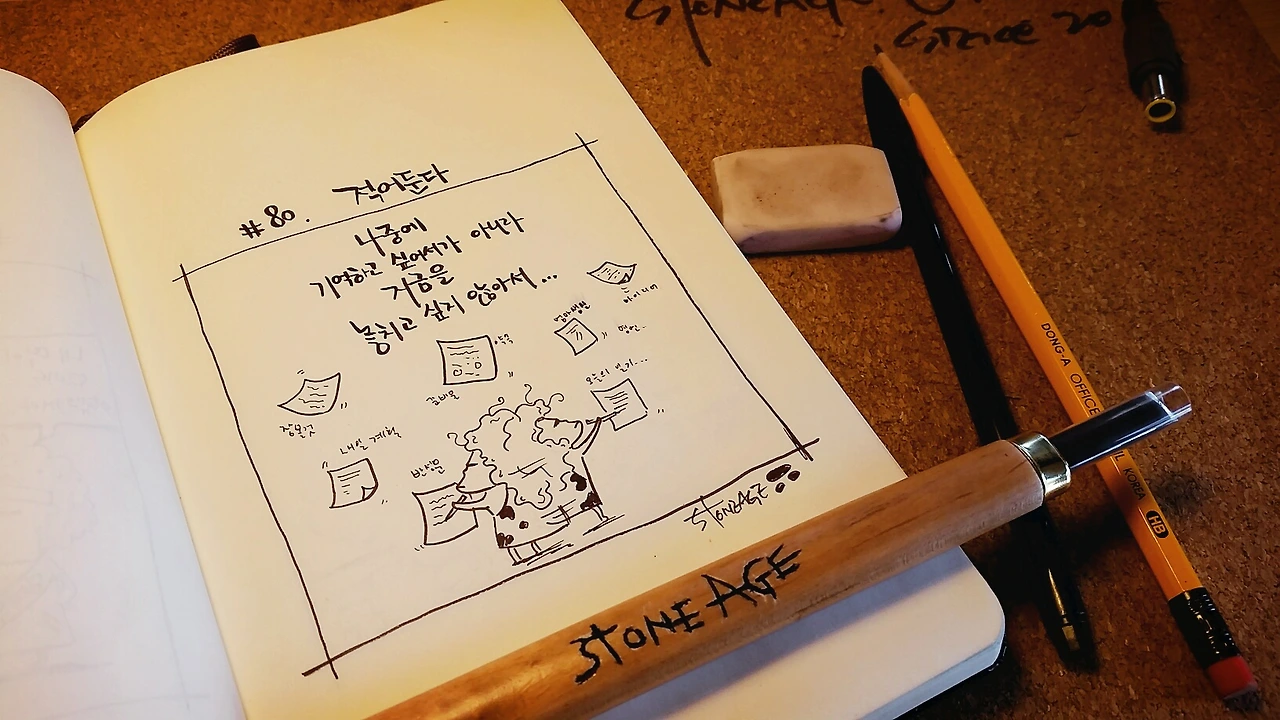 STONEAGE.
SINCE 20
#80. 적어둔다
나중에
기억하고 싶어서가 아니라
지금을
놓치고 싶지 않아서...
아이디어
엄마생신
명언..
오늘의 일기...
준비물
장볼것
내일 계획
반성문
STONEAGE
STONE AGE
DONG-A OFFICE
KOREA HB